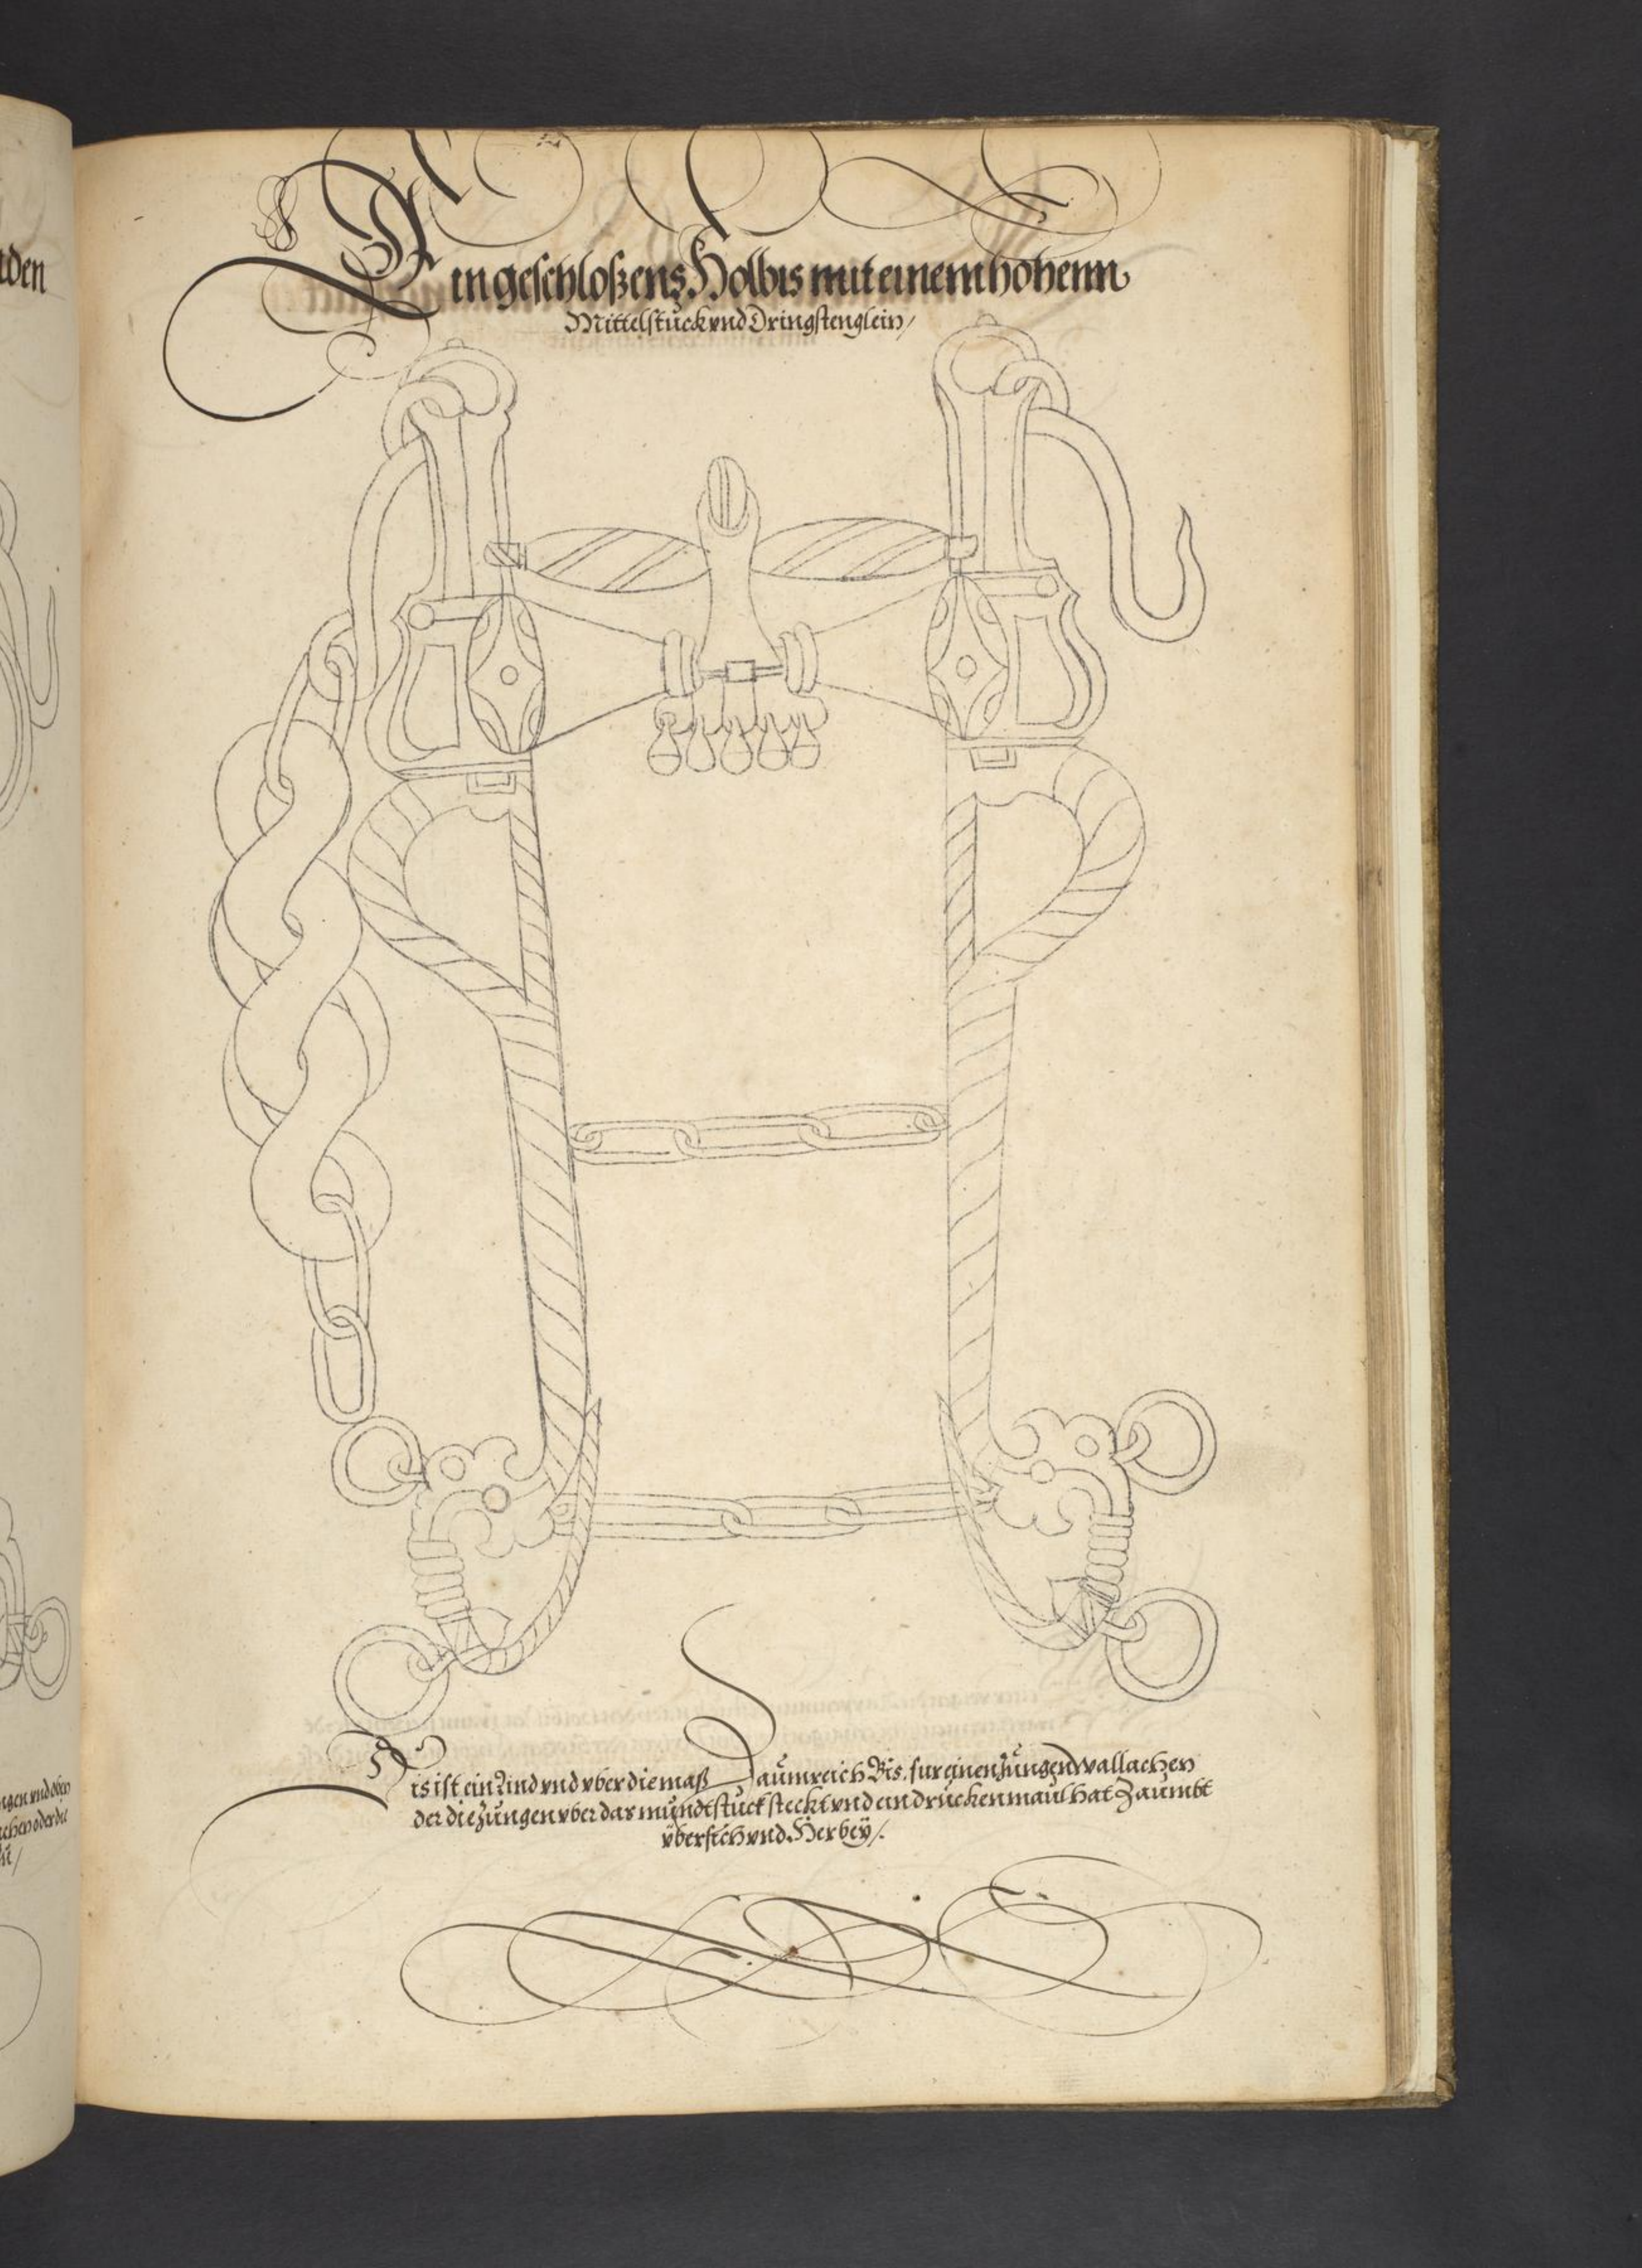 Ein geschloßens Holbis mit einem hohenn
Mittelstuck vnd Dringstenglein /
Dis ist ein Lind vnd vber die maß Daumreich Bis, fur einen Jungen wallachen
der die Zungen vber das mundtstuck steckt vnd ein drucken maul hat Zaumbt
vbersich vnd Herbey /.
den
ngen vnd oben
chen oder die